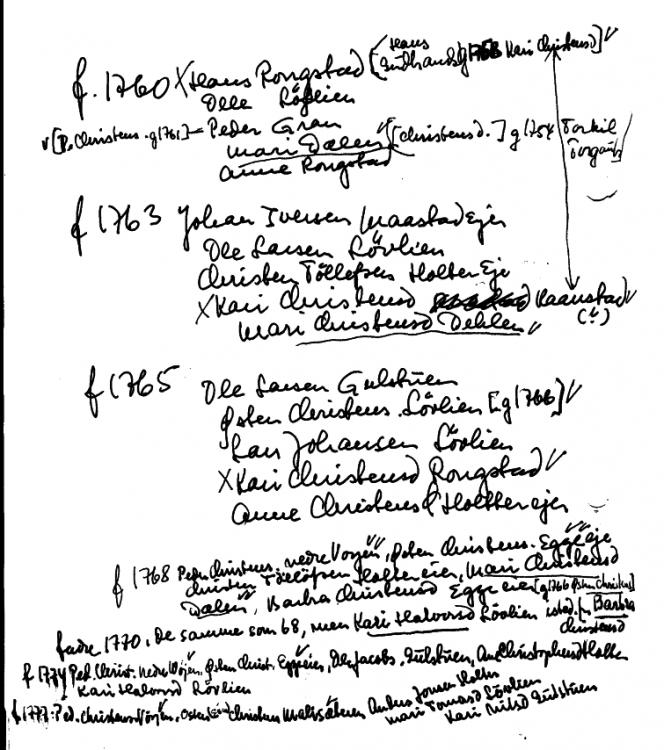 f. 1760 X Hans Rongstad [Hans Gudbrands g 1758 Kari Christensd] √
Olle Lövlien
√ [P. Christens. g 1761] = Peder Gran
Mari Dalen √ [Christensd.] g 1754 Torkil
Anne Rongstad
f 1763 Johan Iversen Maastad Ejer
Ole Larsen Lövlien
Christen Töllefsen Holter Eje
X Kari Christensd Raanstad √
Mari Christensd Dehlen √
f 1765 Ole Larsen Gulstuen
Østen Christens. Lövlien [g 1766] √
Lars Johansen Lövlien
X Kari Christensd Rongstad √
Anne Christensd Holter ejer
f 1768 Peder Christens. nedre Voyen, Østen Christens. Egge eje
Christen Töllöfsen Holter eier, Mari Christensd
Dalen, Barbra Christensd Egge eier [g 1766 Østen Christens]
fadre 1770. De samme som 68, men Kari Halvorsd Lövlien istad. [for Barbra
Christensd
f 1774 Ped. Christ. nedre Wöjen, Østen Christ. Eggeeien, Ole Jacobs. Gulstuen, An Christophersd Holter
Kari Halvorsd Lövlien
f 1777: Ped. Christens Vöyen, Østen Christens Anders Jonsen Holter
Mari Tomasd Lövlien
Kari Nilsd Gulstuen